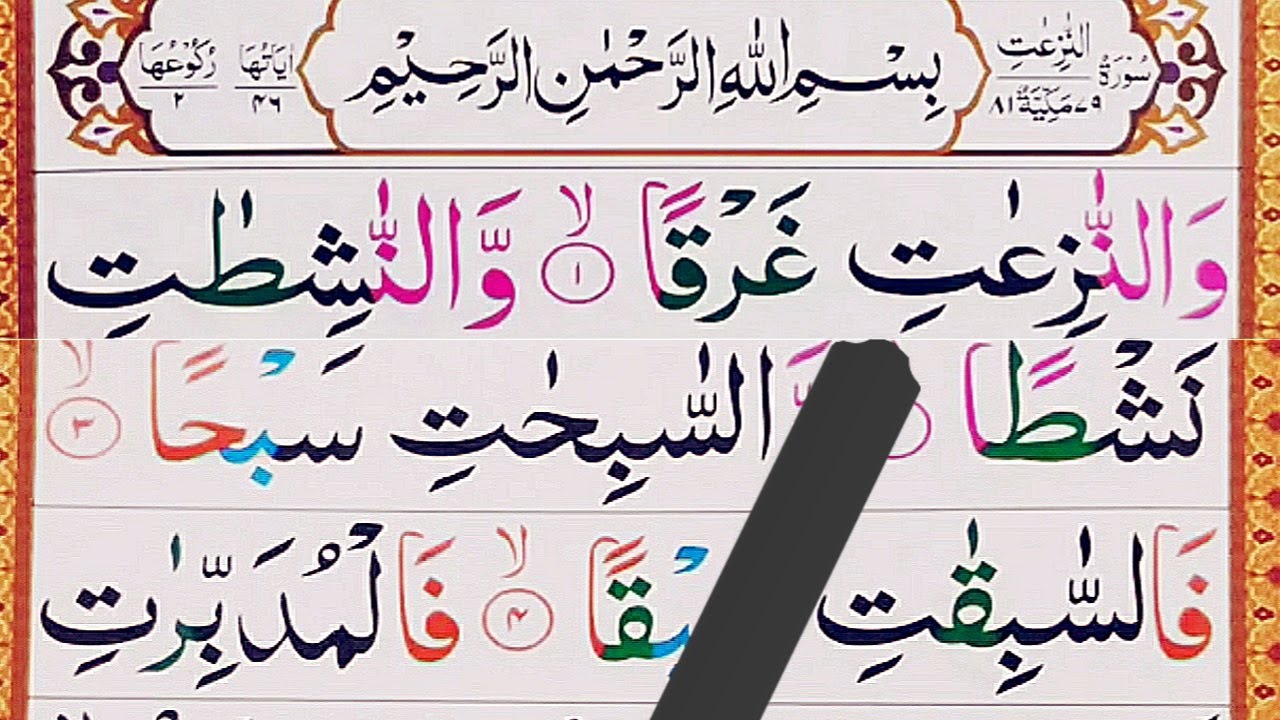 سُوْرَةُ النّٰزِعٰتِ
٧٩ مَكِّيَّةٌ ٨١
بِسْمِ اللّٰهِ الرَّحْمٰنِ الرَّحِيْمِ
اٰيَاتُهَا ٤٦
رُكُوْعُهَا ٢
وَالنّٰزِعٰتِ غَرْقًا ۙ ١ وَّالنّٰشِطٰتِ
نَشْطًا وَّالسّٰبِحٰتِ سَبْحًا ۙ ٣
فَالسّٰبِقٰتِ ۙ ٤ فَالْمُدَبِّرٰتِ